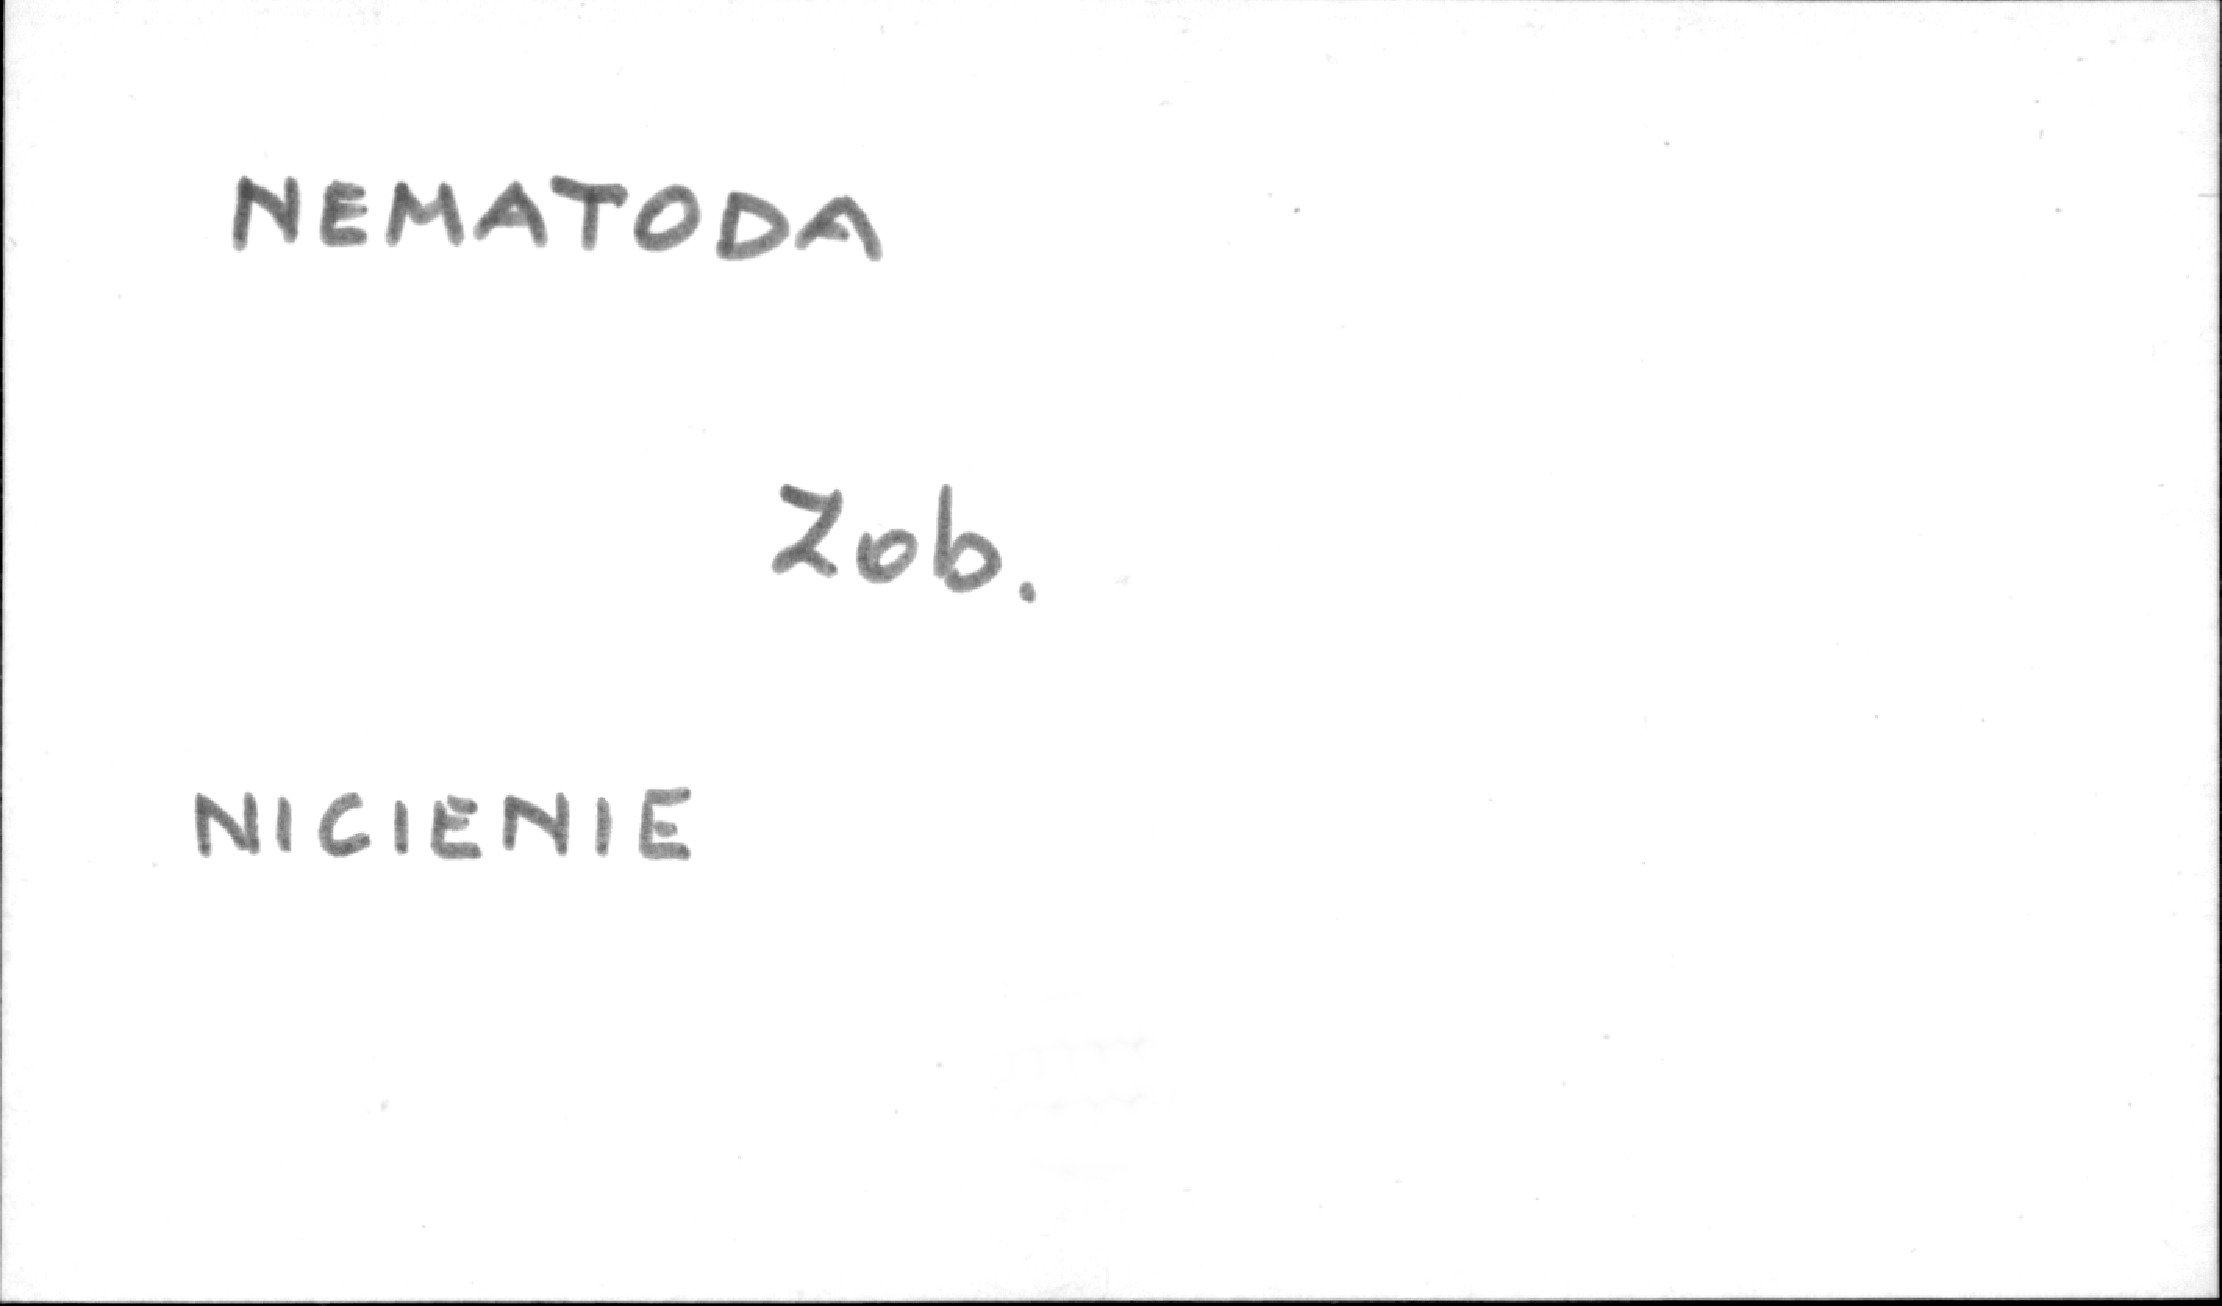 NEMATODA
Zob.
NICIENIE